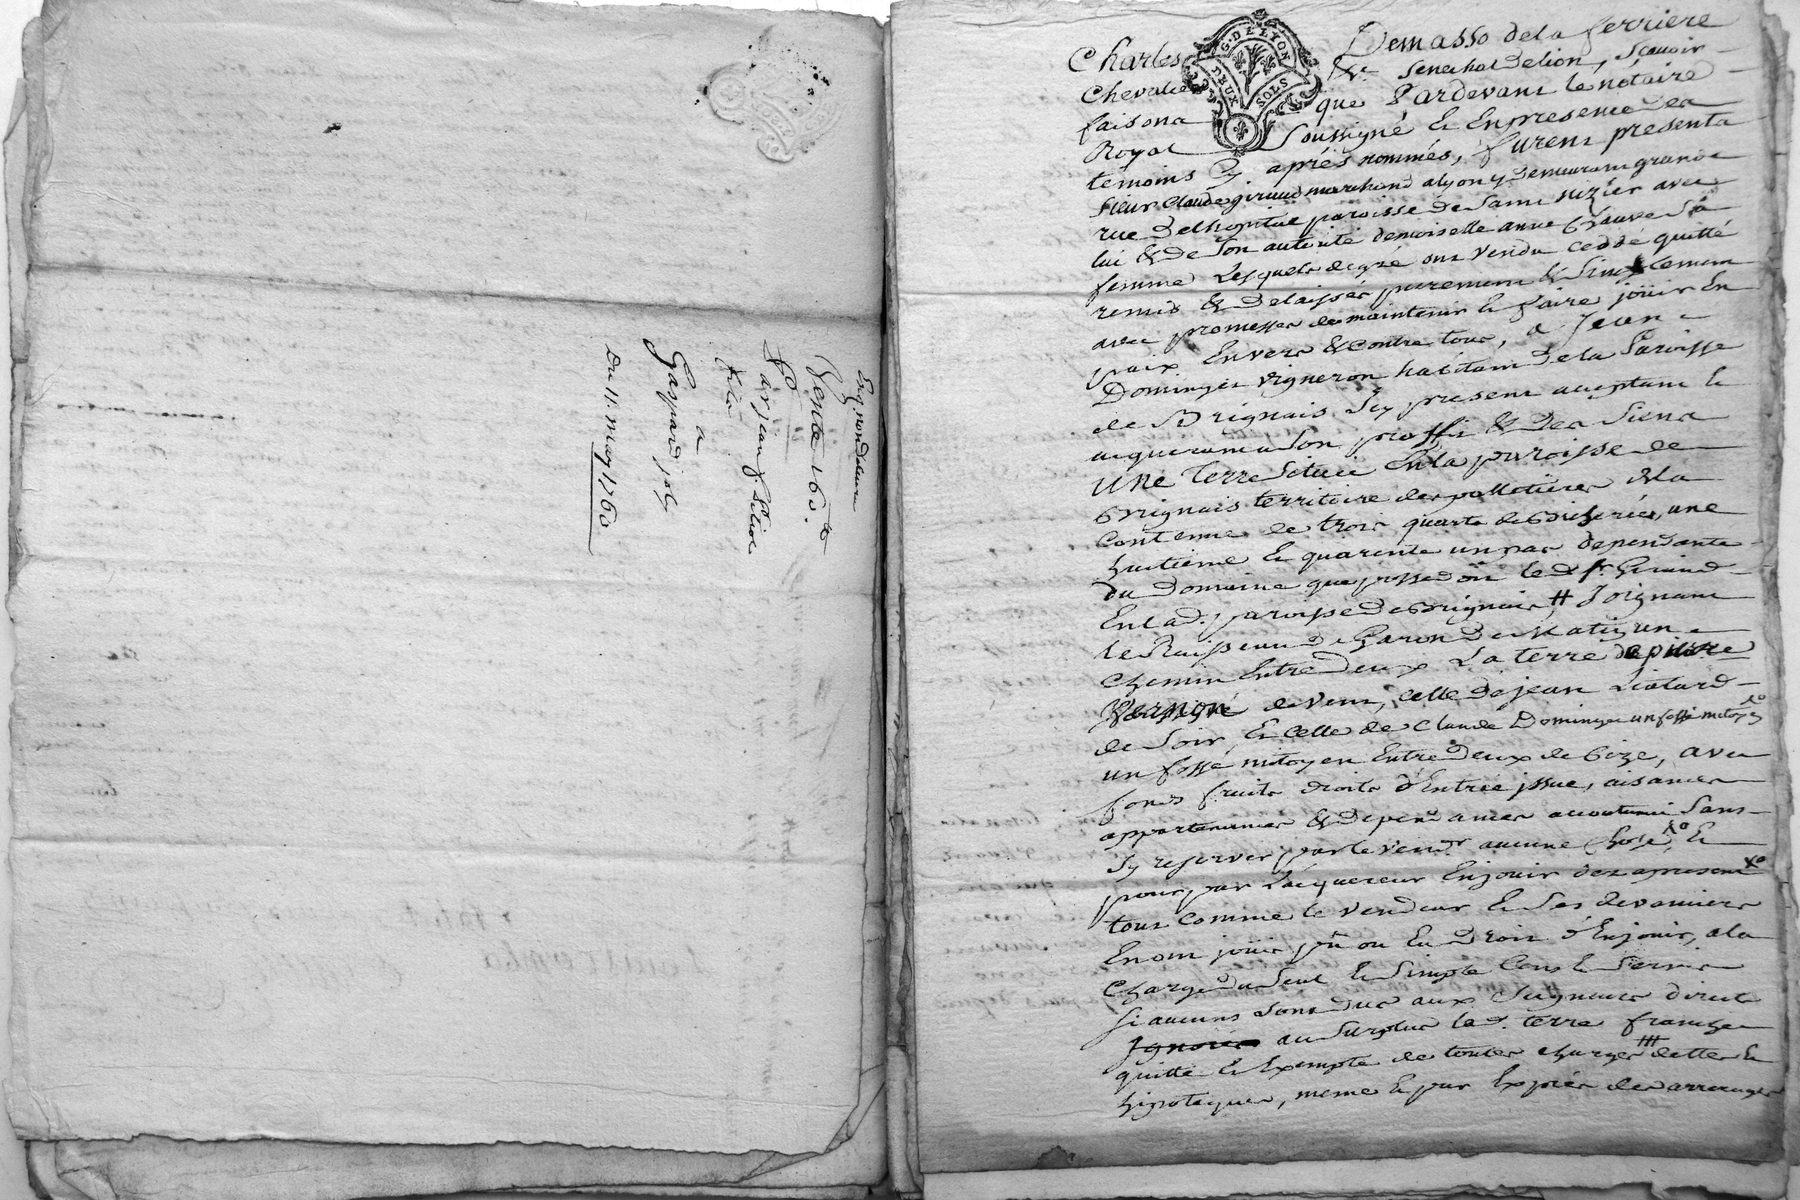 Exq. non d'eux
Vente 160.#
P.
Par jean f. Pitiot
fils
a
Gaspard joly
Du 11. may 1760
G. DE LYON
DEUX SOLS
Charles Demasso de la ferriere
Chevalier Sr. Senechal Delion, Scavoir
faisons que Pardevant le nótaire
Royal Soussigné Et En presence des
temoins Cy aprés nommés, furent presents
Sieur Claude giraud marchand a lyon y Demeurant grande
rue Delhopital paroisse de Saint nizier avec
lui & de Son autorité demoiselle anne Chauve Sa
femme Lesquels de gré ont vendu ceddé quitté
remis & delaissés purement & Simplement
avec promesses de maintenir Et faire joüir En
paix Envers & contre tous, a Jean
Dominger vigneron habitant de la Paroisse
de Brignais Icy present acceptant Et
acquerant a Son proffit & des Siens
une terre Situéé En la paroisse de
Brignais territoire des palletieres de la
Contenue de trois quarts de Bicherées, une
huitieme Et quarente un pas dependante
du Domaine que possedoit le d. Sr. Giraud
En lad. paroisse de Brignais, # Joignant
le Ruisseau de Garon de Matin un
chemin Entre deux La terre de pierre
Vernon de vent, celle de jean Liotard
de Soir, Et Celle de Claude Dominger un fossé mitoyen
un fossé mitoyen Entre deux de bize, avec
fonds fruits droits d'Entréé issue, aisances
appartenances & dependances accoutumé Sans
Sy reserver par le vendr aucune chose, Et
pour par Lacquereur En jouir dez apresent
tout comme le vendeur Et Ses devanciers
En ont joüir pû ou Eu Droit d'En jouir, a la
Charge du Seul Et Simple Cens & Servis
Si aucuns Sont dus aux Seigneurs directs
Ignorés au Surplus lad. terre franche
quitte Et Exempte de toutes charges ### dettes Et
hipoteques, meme Et par Exprés des arrerages